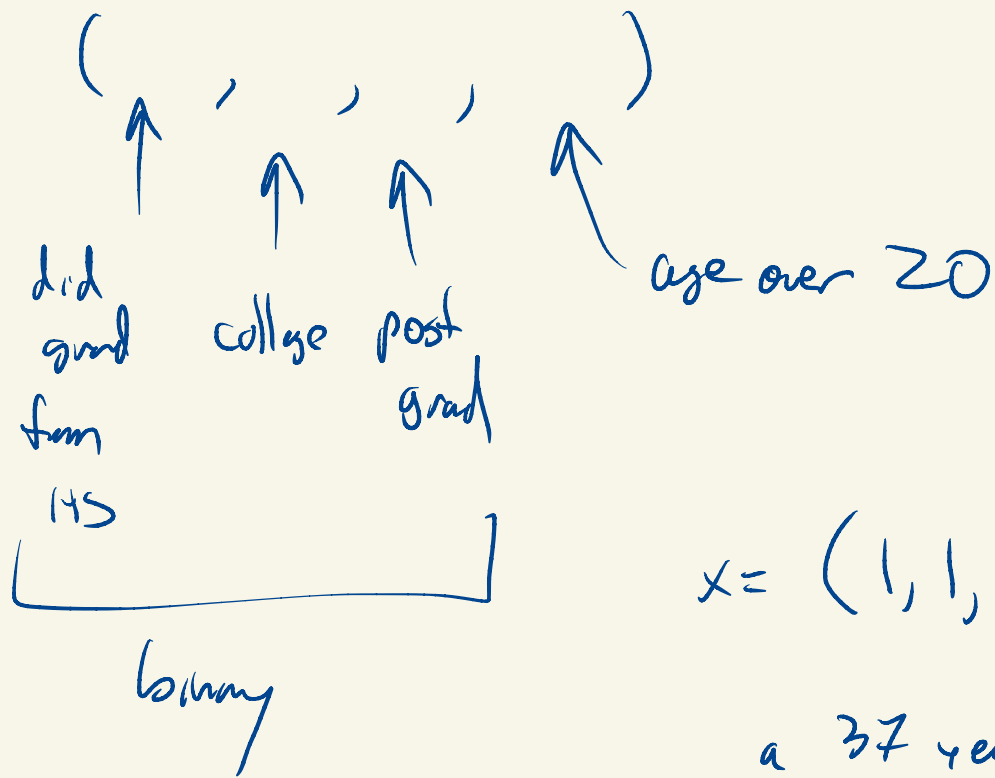 ( , , , )
did
grad
from
HS
college
post
grad
age over 20
binary
x = (1, 1,
a 37 ye